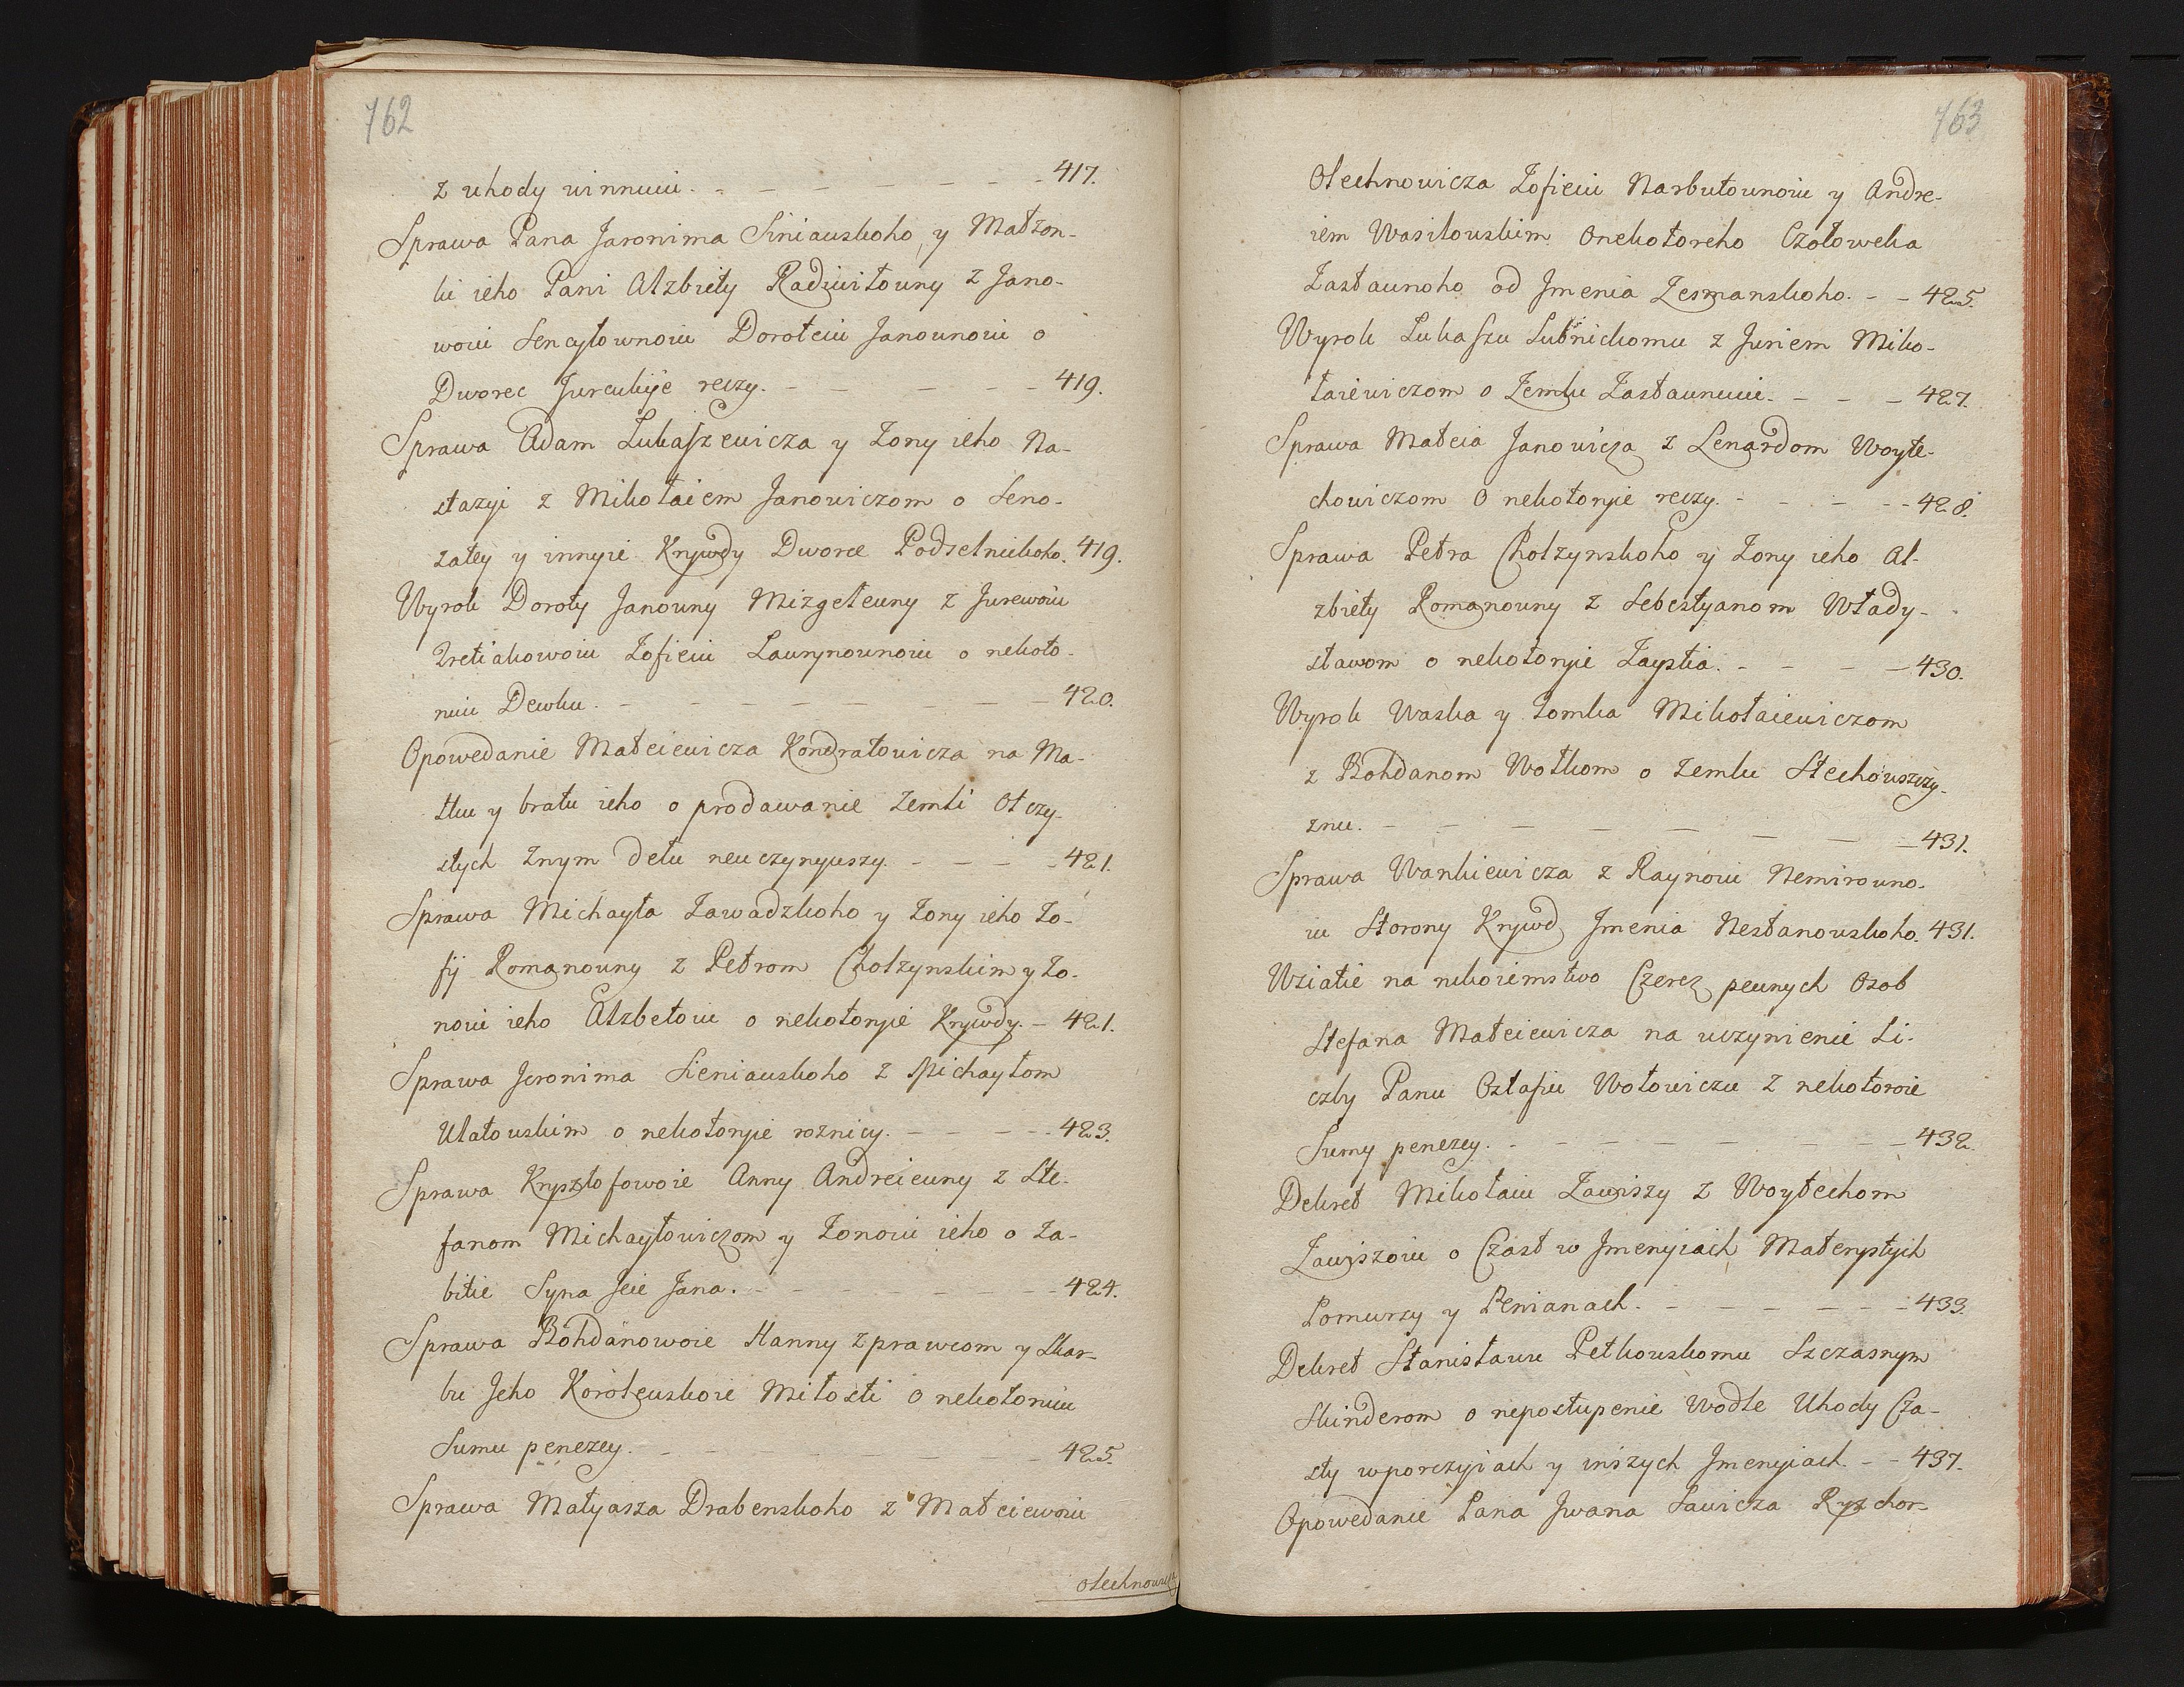 762
z uhody winnuiu. - - - - - - - 417.
Sprawa Pana Jaronima Siniauskoho, y Małżon-
ki ieho Pani Alzbiety Radziwiłouny z Jano-
woiu Sencyłownoiu Doroteiu Janounoiu o
Dworec Jurcukiie reczy. - - - - - 419.
Sprawa Adam Lukaszewicza y Zony ieho Na-
stazyi z Mikołaiem Janowiczom o Seno-
zatey y innyie Krywdy Dworce Podselnickoho. 419.
Wyrok Doroty Janouny Mizgeteuny z Jurewoiu
Tretiakowoiu Zofieiu Laurynounoiu o nekoto-
ruiu Dewku. - - - - - - - - 420.
Opowedanie Mateiewicza Kondratowicza na Ma-
tku y bratu ieho o prodawanie Zemli Otczy-
stych Znym dełu neuczynyuszy. - - - - 421.
Sprawa Michayła Zawadzkoho y Zony ieho Zo-
fij Romanouny z Petrom Chołzynskim y Zo-
noiu ieho Alzbetoiu o nekotoryie Krywdy. - 421.
Sprawa Jeronima Sieniauskoho z Michayłom
Ułatouskim o nekotoryie roznicy. - - - - 423.
Sprawa Krysztofowoie Anny Andreieuny z Ste-
fanom Michayłowiczom y Zonoiu ieho o Za-
bitie Syna Jeie Jana. - - - - - - - 424.
Sprawa Bohdanowoie Hanny z prawcom y Skar-
bu Jeho Koroleuskoie Miłosti o nekotoruiu
Sumu penezey. - - - - - - - 425.
Sprawa Matyasza Drabenskoho z Mateiewoiu
Olechnowicza
763
Olechnowicza Zofieiu Narbutounoiu y Andre-
iem Wasiłouskim Onekotoreho Czołoweka
Zastaunoho od Jmenia Zesmanskoho. - - 425.
Wyrok Lukaszu Lubnickomu z Juriem Miko-
łaiewiczom o Zemlu Zastaunuiu. - - - 427.
Sprawa Mateia Janowicza z Lenardom Woyte-
chowiczom O nekotoryie reczy. - - - - - 428.
Sprawa Petra Chołzynskoho y Zony ieho Al-
zbiety Romanouny z Sebestyanom Włady-
sławom o nekotoryie Zaystia. - - - - 430.
Wyrok Waska y Tomka Mikołaiewiczom
z Bohdanom Wołkom o Zemlu Stechouszczy-
znu. - - - - - - - - 431.
Sprawa Wankiewicza z Raynoiu Nemirouno-
iu Storony Krywd Jmenia Nestanouskoho. 431.
Wziatie na rukoiemstwo Czerez peunych Osob
Stefana Mateiewicza na uczynienie Li-
czby Panu Ostafiu Wołowiczu Z nekotoroie
Sumy penezey. - - - - - - - - 432.
Dekret Mikołaiu Zawiszy z Woytechom
Zawiszoiu o Czast w Jmenyiach Materystych
Pomurzy y Penianach. - - - - - - 433.
Dekret Stanisławu Petkouskomu Szczasnym
Skinderom o nepostupenie Wodle Uhody Cza-
sty wporczyiach y inszych Jmenyiach. - - 437.
Opowedanie Pana Jwana Sawicza Ryzchor-